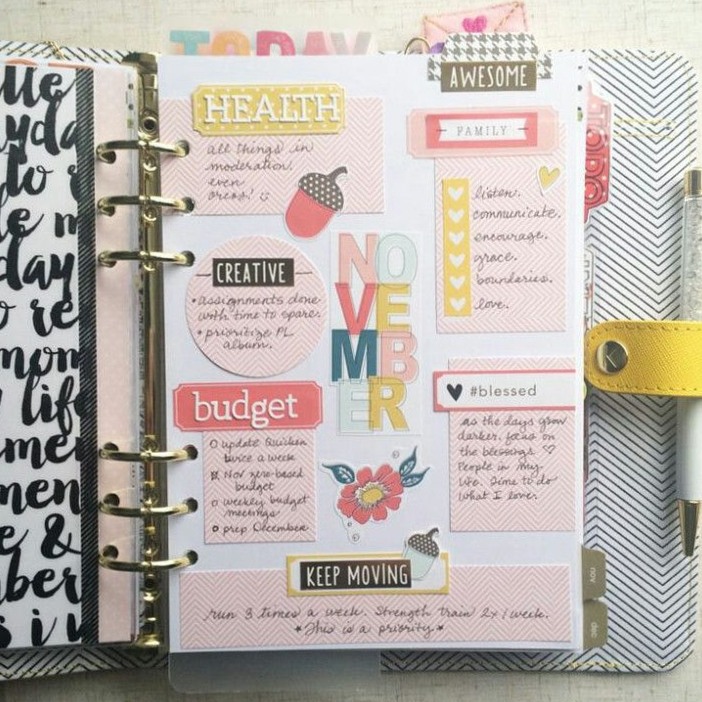 TODAY
AWESOME
HEALTH
all things in
moderation,
even
FAMILY
listen.
communicate.
encourage.
grace.
bounderies.
love.
NO
VE
MB
ER
CREATIVE
• assignments done
with time to spare.
• prioritize PL
album.
budget
update Quicken
twice a week
Nov zero-based
budget
weekly budget
meetings
prep December
#blessed
as the days grow
darker, focus on
the blessings ♡
People in my
life. Time to do
what I love.
KEEP MOVING
run 3 times a week. Strength train 2x/week.
★ This is a priority ★
TODO
K
nov
dec